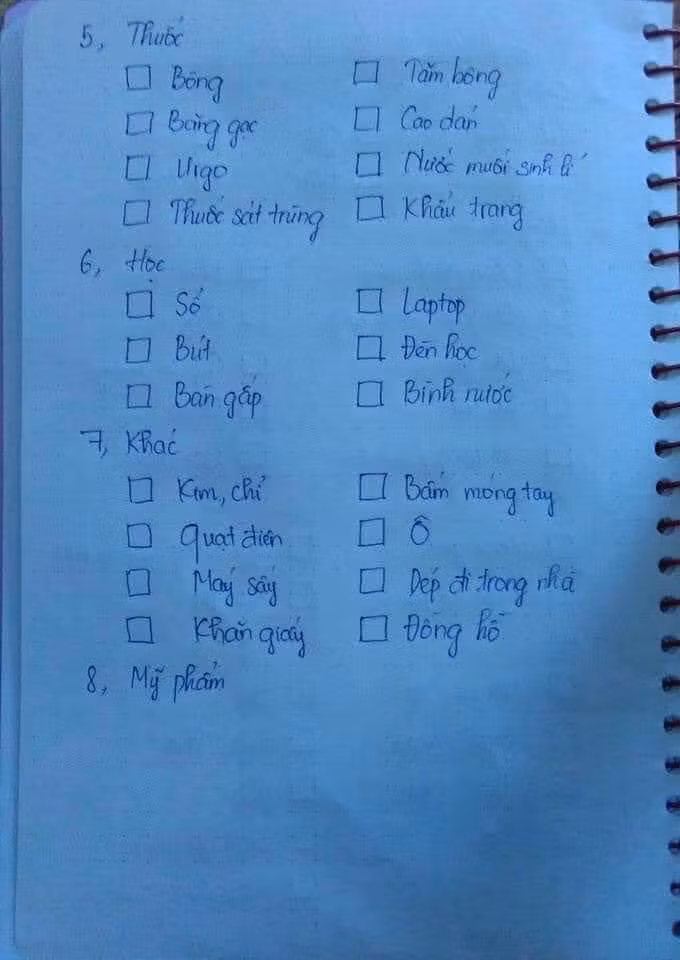 5, Thuốc
☐ Bông ☐ Tăm bông
☐ Băng gạc ☐ Cao dán
☐ Urgo ☐ Nước muối sinh lí
☐ Thuốc sát trùng ☐ Khẩu trang
6, Học
☐ Sổ ☐ Laptop
☐ Bút ☐ Đèn học
☐ Bàn gấp ☐ Bình nước
7, Khác
☐ Kim, chỉ ☐ Bấm móng tay
☐ Quạt điện ☐ Ô
☐ Máy sấy ☐ Dép đi trong nhà
☐ Khăn giấy ☐ Đồng hồ
8, Mỹ phẩm